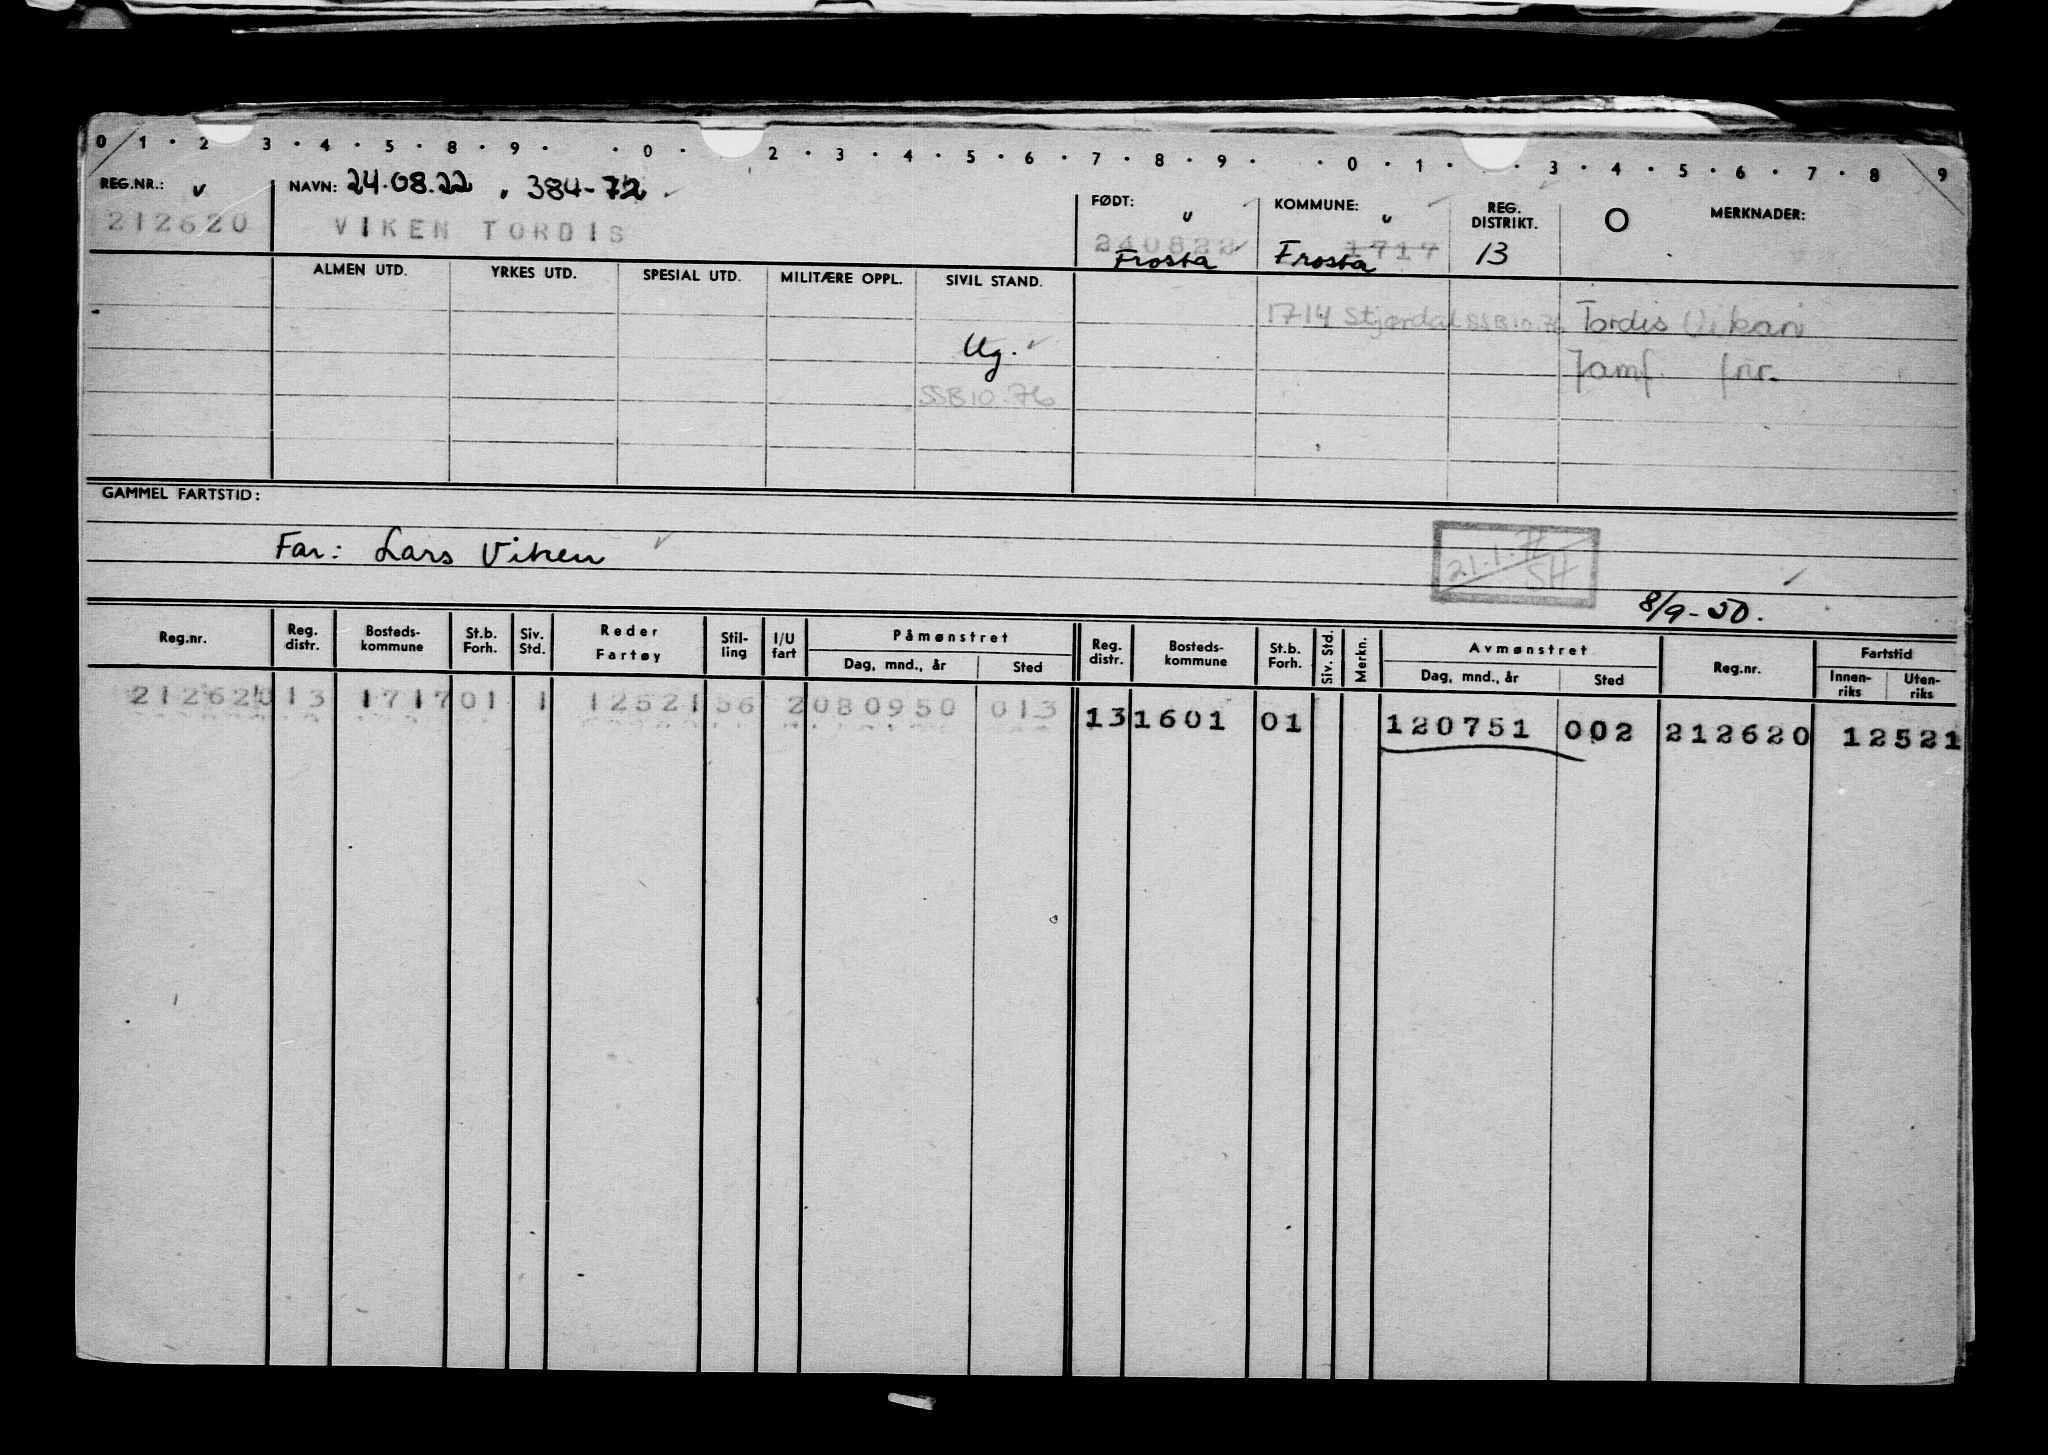 0 1 · 2 3 · 4 · 5 · 8 · 9 · · 0 · 2 · 3 · 4 · 5 · 6 · 7 · 8 · 9 · · 0 · 1 · · 3 · 4 · 5 · 6 · 7 · 8 9
REG.NR.: NAVN: 24.08.22 384-72 FØDT: KOMMUNE: REG. DISTRIKT. O MERKNADER:
212620 VIKEN TORDIS 240822 1717
Frosta Frosta 13
ALMEN UTD. YRKES UTD. SPESIAL UTD. MILITÆRE OPPL. SIVIL STAND.
1714 Stjørdal SSB 10.76 Tordis Vikan
Ug. Jamf. fnr.
SSB 10.76
GAMMEL FARTSTID:
Far: Lars Viken
21.1. SH
8/9-50.
Reg.nr. Reg. distr. Bosteds-kommune St.b. Forh. Siv. Std. Reder Fartøy Stil-ling I/U fart Påmønstret Dag, mnd., år Sted Reg. distr. Bosteds-kommune St.b. Forh. Siv. Std. Merkn. Avmønstret Dag, mnd., år Sted Reg.nr. Fartstid Innen-riks Uten-riks
212620 13 1717 01 1 12521 56 2 080950 013 13 1601 01 120751 002 212620 12521